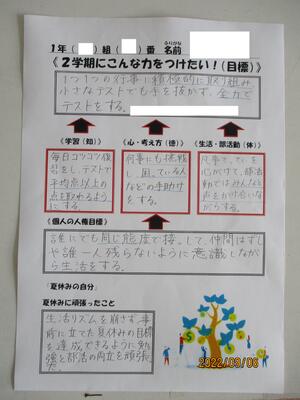 1年 組 番 名前
ふりがな
《2学期にこんな力をつけたい！(目標)》
1つ1つの行事に積極的に取り組み
小さなテストでも手を抜かず、全力で
テストをする。
《学習（知）》
《心・考え方（徳）》
《生活・部活動（体）》
毎日コツコツ復
習をし、テストで
平均点以上の
点を取れるよう
にする。
何事にも挑戦
し、困っている人
などの手助けを
する。
心がけて、部活
動ではみんなと
声をかけ合いな
がらする。
《個人の人権目標》
誰にでも同じ態度で接して、仲間はずし
や誰一人残らないように意識しなが
ら生活をする。
『夏休みの自分』
夏休みに頑張ったこと
生活リズムを崩さず、事
前に立てた夏休みの目標
を達成できるように勉
強と部活の両立を頑張
2022/09/06